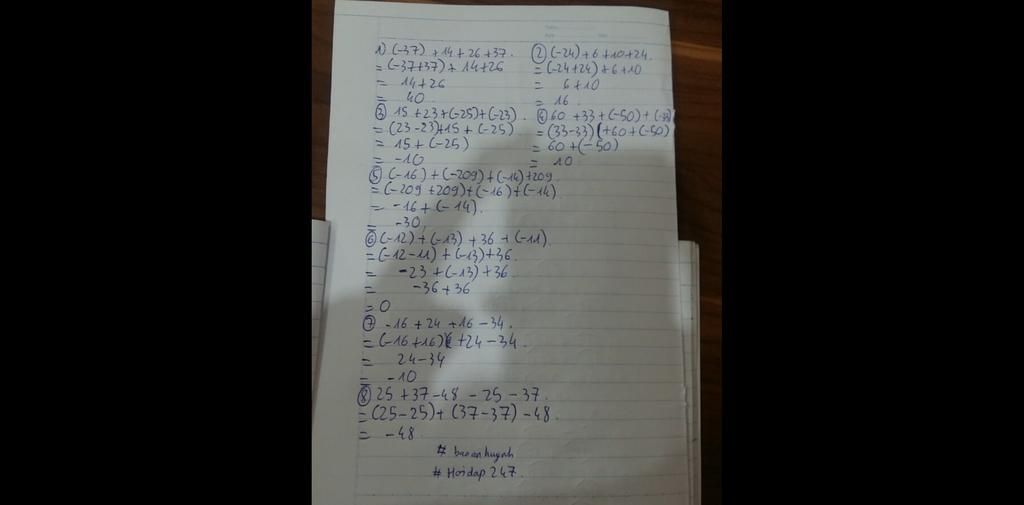 1) (-37) + 14 + 26 + 37.
= (-37+37) + 14+26
= 14 + 26
= 40
② (-24) + 6 + 10 + 24.
= (-24+24) + 6 + 10
= 6 + 10
= 16.
③ 15 + 23 + (-25) + (-23).
= (23 - 23) + 15 + (-25)
= 15 + (-25)
= -10
④ 60 + 33 + (-50) + (-33)
= (33-33) + 60 + (-50)
= 60 + (-50)
= 10
⑤ (-16) + (-209) + (-14) + 209.
= (-209 + 209) + (-16) + (-14).
= -16 + (-14).
= -30.
⑥ (-12) + (-13) + 36 + (-11)
= (-12-11) + (-13) + 36.
= -23 + (-13) + 36.
= -36 + 36
= 0
⑦ -16 + 24 + 16 - 34.
= (-16 + 16) + 24 - 34.
= 24 - 34
= -10
⑧ 25 + 37 - 48 - 25 - 37.
= (25-25) + (37-37) - 48.
= -48.
# Hoidap 247.